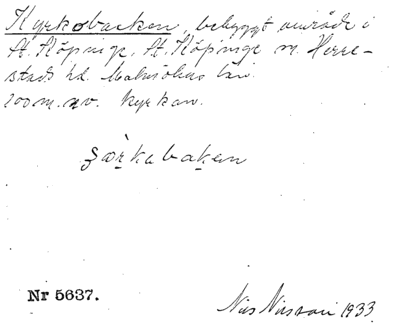 Kyrkobacken, bebyggt område i
St. Köpinge, St. Köpinge sn. Herre-
stads hd. Malmöhus län.
200 m. nv. kyrkan.
Nr 5637.
Nils Nilsson 1933